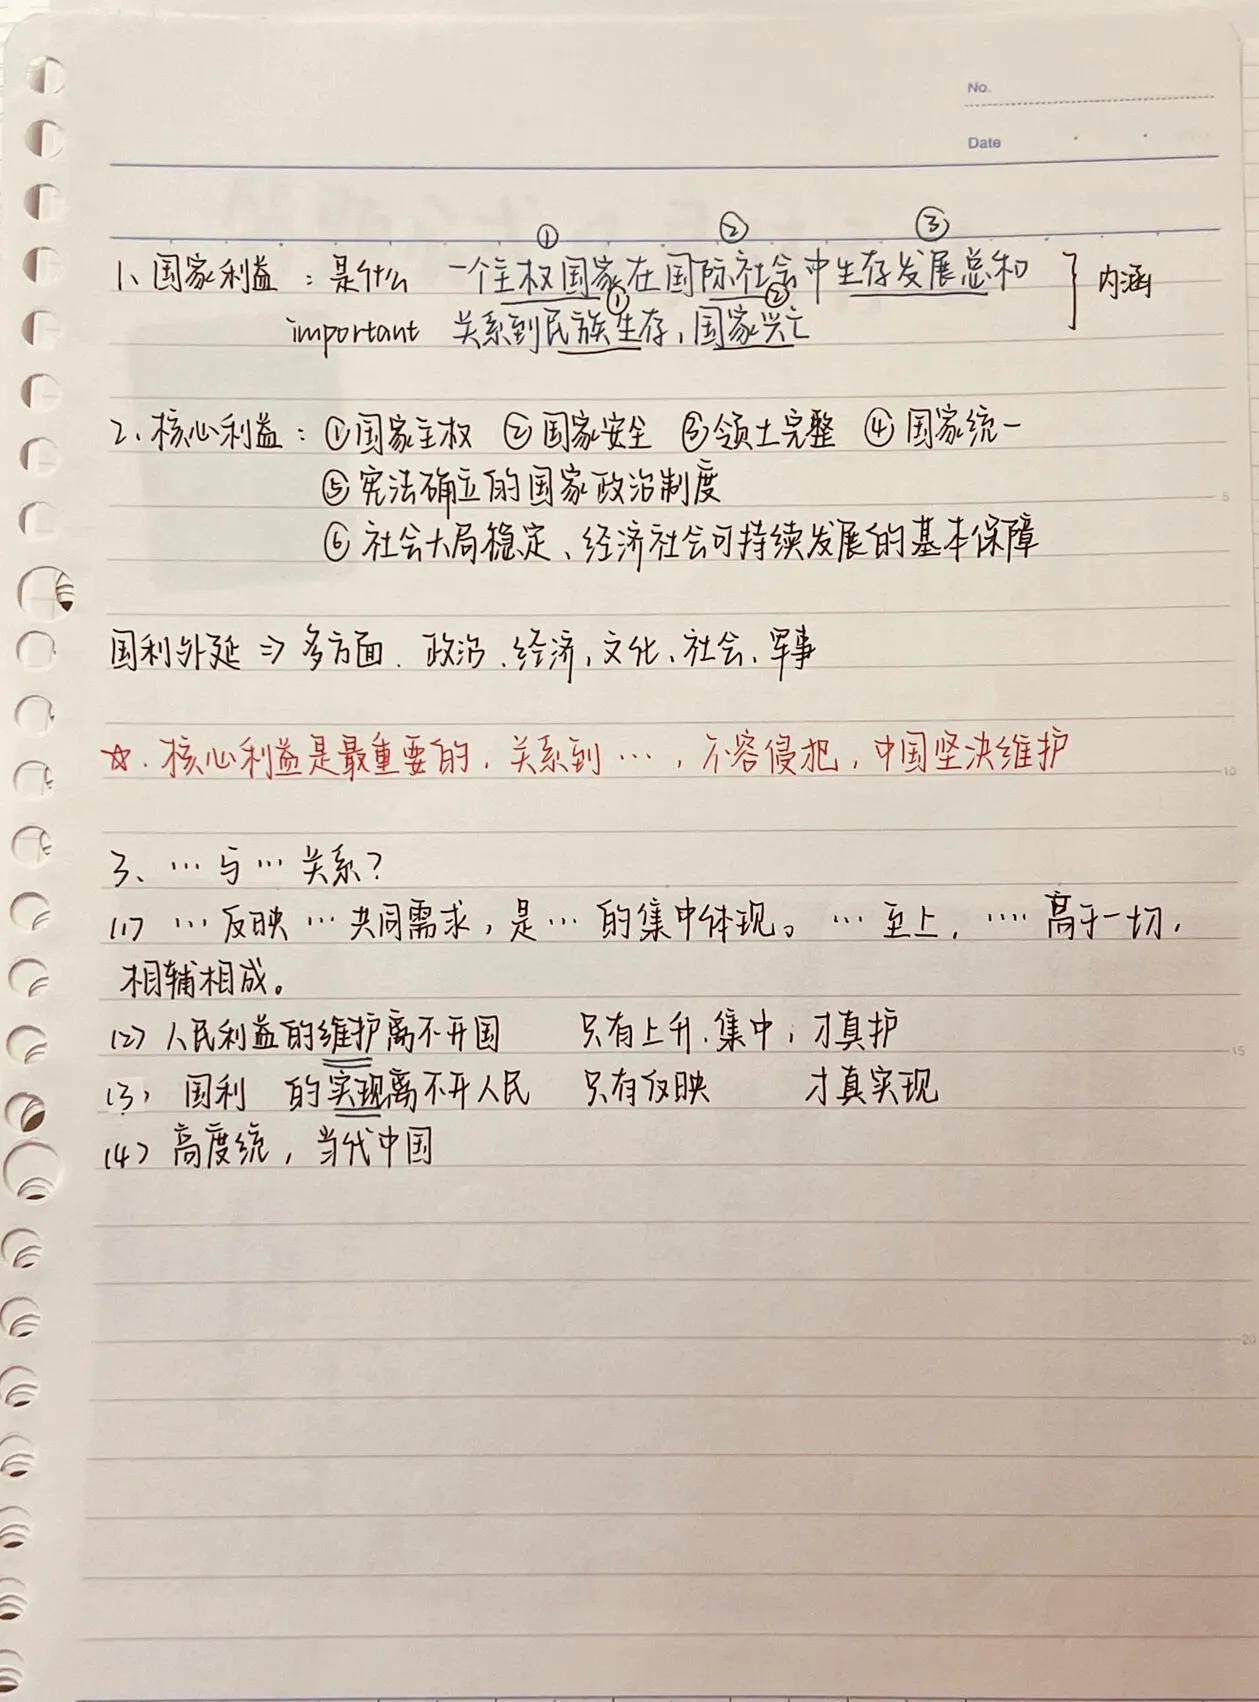 No.
Date
① ② ③
1、国家利益：是什么 一个主权国家在国际社会中生存发展总和 内涵
① ②
important 关系到民族生存，国家兴亡
2、核心利益：①国家主权 ②国家安全 ③领土完整 ④国家统一
⑤宪法确立的国家政治制度
5
⑥社会大局稳定、经济社会可持续发展的基本保障
国利外延 => 多方面．政治、经济，文化、社会、军事
☆．核心利益是最重要的，关系到…，不容侵犯，中国坚决维护
10
3、…与…关系？
(1) …反映…共同需求，是…的集中体现。…至上，….高于一切，
相辅相成。
(2) 人民利益的维护离不开国 只有上升、集中，才真护
15
(3) 国利 的实现离不开人民 只有反映 才真实现
(4) 高度统，当代中国
20